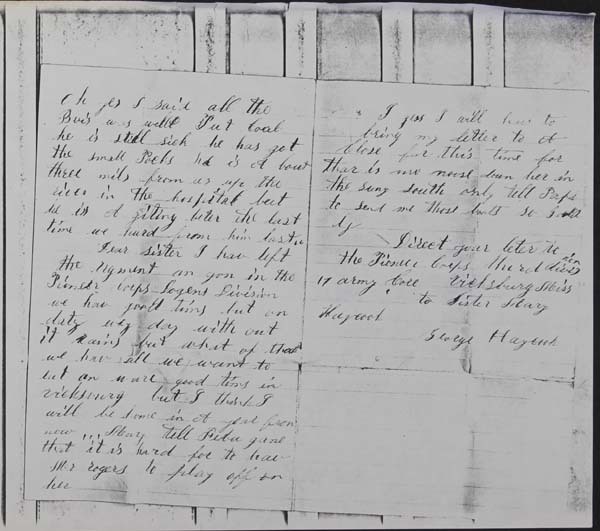 Oh yes I said all the
Bois was well But Coal
he is still sick he has got
the small Pocks he is A bout
three mils from us up the
river in the hospital but
he is A giting beter the last
time we hurd from him
Dear sister I hav left
the regment an gon in the
Pioneer Corps Logens Division
we hav good tims but on
duty evry day with out
it rains but what of that
we hav all we want to
eat an more good tims in
vicksburg but I think I
will be home in A year from
now Mary tell
that it is hard for to hav
Mr rogers to play off on
her
I gess I will hav to
bring my letter to A
Close for this time for
thar is no noose down her in
the suny South only tell Pap
to send me those boots so I
Direct your leter to
the Pioneer Corps third divis ion
17 army Core Vicksburg Miss
to Sister Mary
Haycock
George Haycock